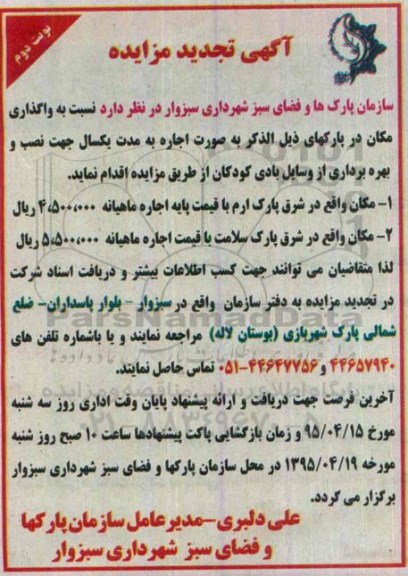 نوبت دوم
آگهی تجدید مزایده
سازمان پارک ها و فضای سبز شهرداری سبزوار در نظر دارد نسبت به واگذاری
مکان در پارکهای ذیل الذکر به صورت اجاره به مدت یکسال جهت نصب و
بهره برداری از وسایل بادی کودکان از طریق مزایده اقدام نماید.
۱- مکان واقع در شرق پارک ارم با قیمت پایه اجاره ماهیانه ۴،۵۰۰،۰۰۰ ریال
۲- مکان واقع در شرق پارک سلامت با قیمت اجاره ماهیانه ۵،۵۰۰،۰۰۰ ریال
لذا متقاضیان می توانند جهت کسب اطلاعات بیشتر و دریافت اسناد شرکت
در تجدید مزایده به دفتر سازمان واقع در سبزوار - بلوار پاسداران- ضلع
شمالی پارک شهربازی (بوستان لاله) مراجعه نمایند و یا باشماره تلفن های
۴۴۶۵۷۹۴۰ و ۴۴۶۴۷۷۵۶-۰۵۱ تماس حاصل نمایند.
آخرین فرصت جهت دریافت و ارائه پیشنهاد پایان وقت اداری روز سه شنبه
مورخ ۹۵/۰۴/۱۵ و زمان بازگشایی پاکت پیشنهادها ساعت ۱۰ صبح روز شنبه
مورخه ۱۳۹۵/۰۴/۱۹ در محل سازمان پارکها و فضای سبز شهرداری سبزوار
برگزار می گردد.
علی دلبری-مدیرعامل سازمان پارکها
و فضای سبز شهرداری سبزوار
ParsNamadData